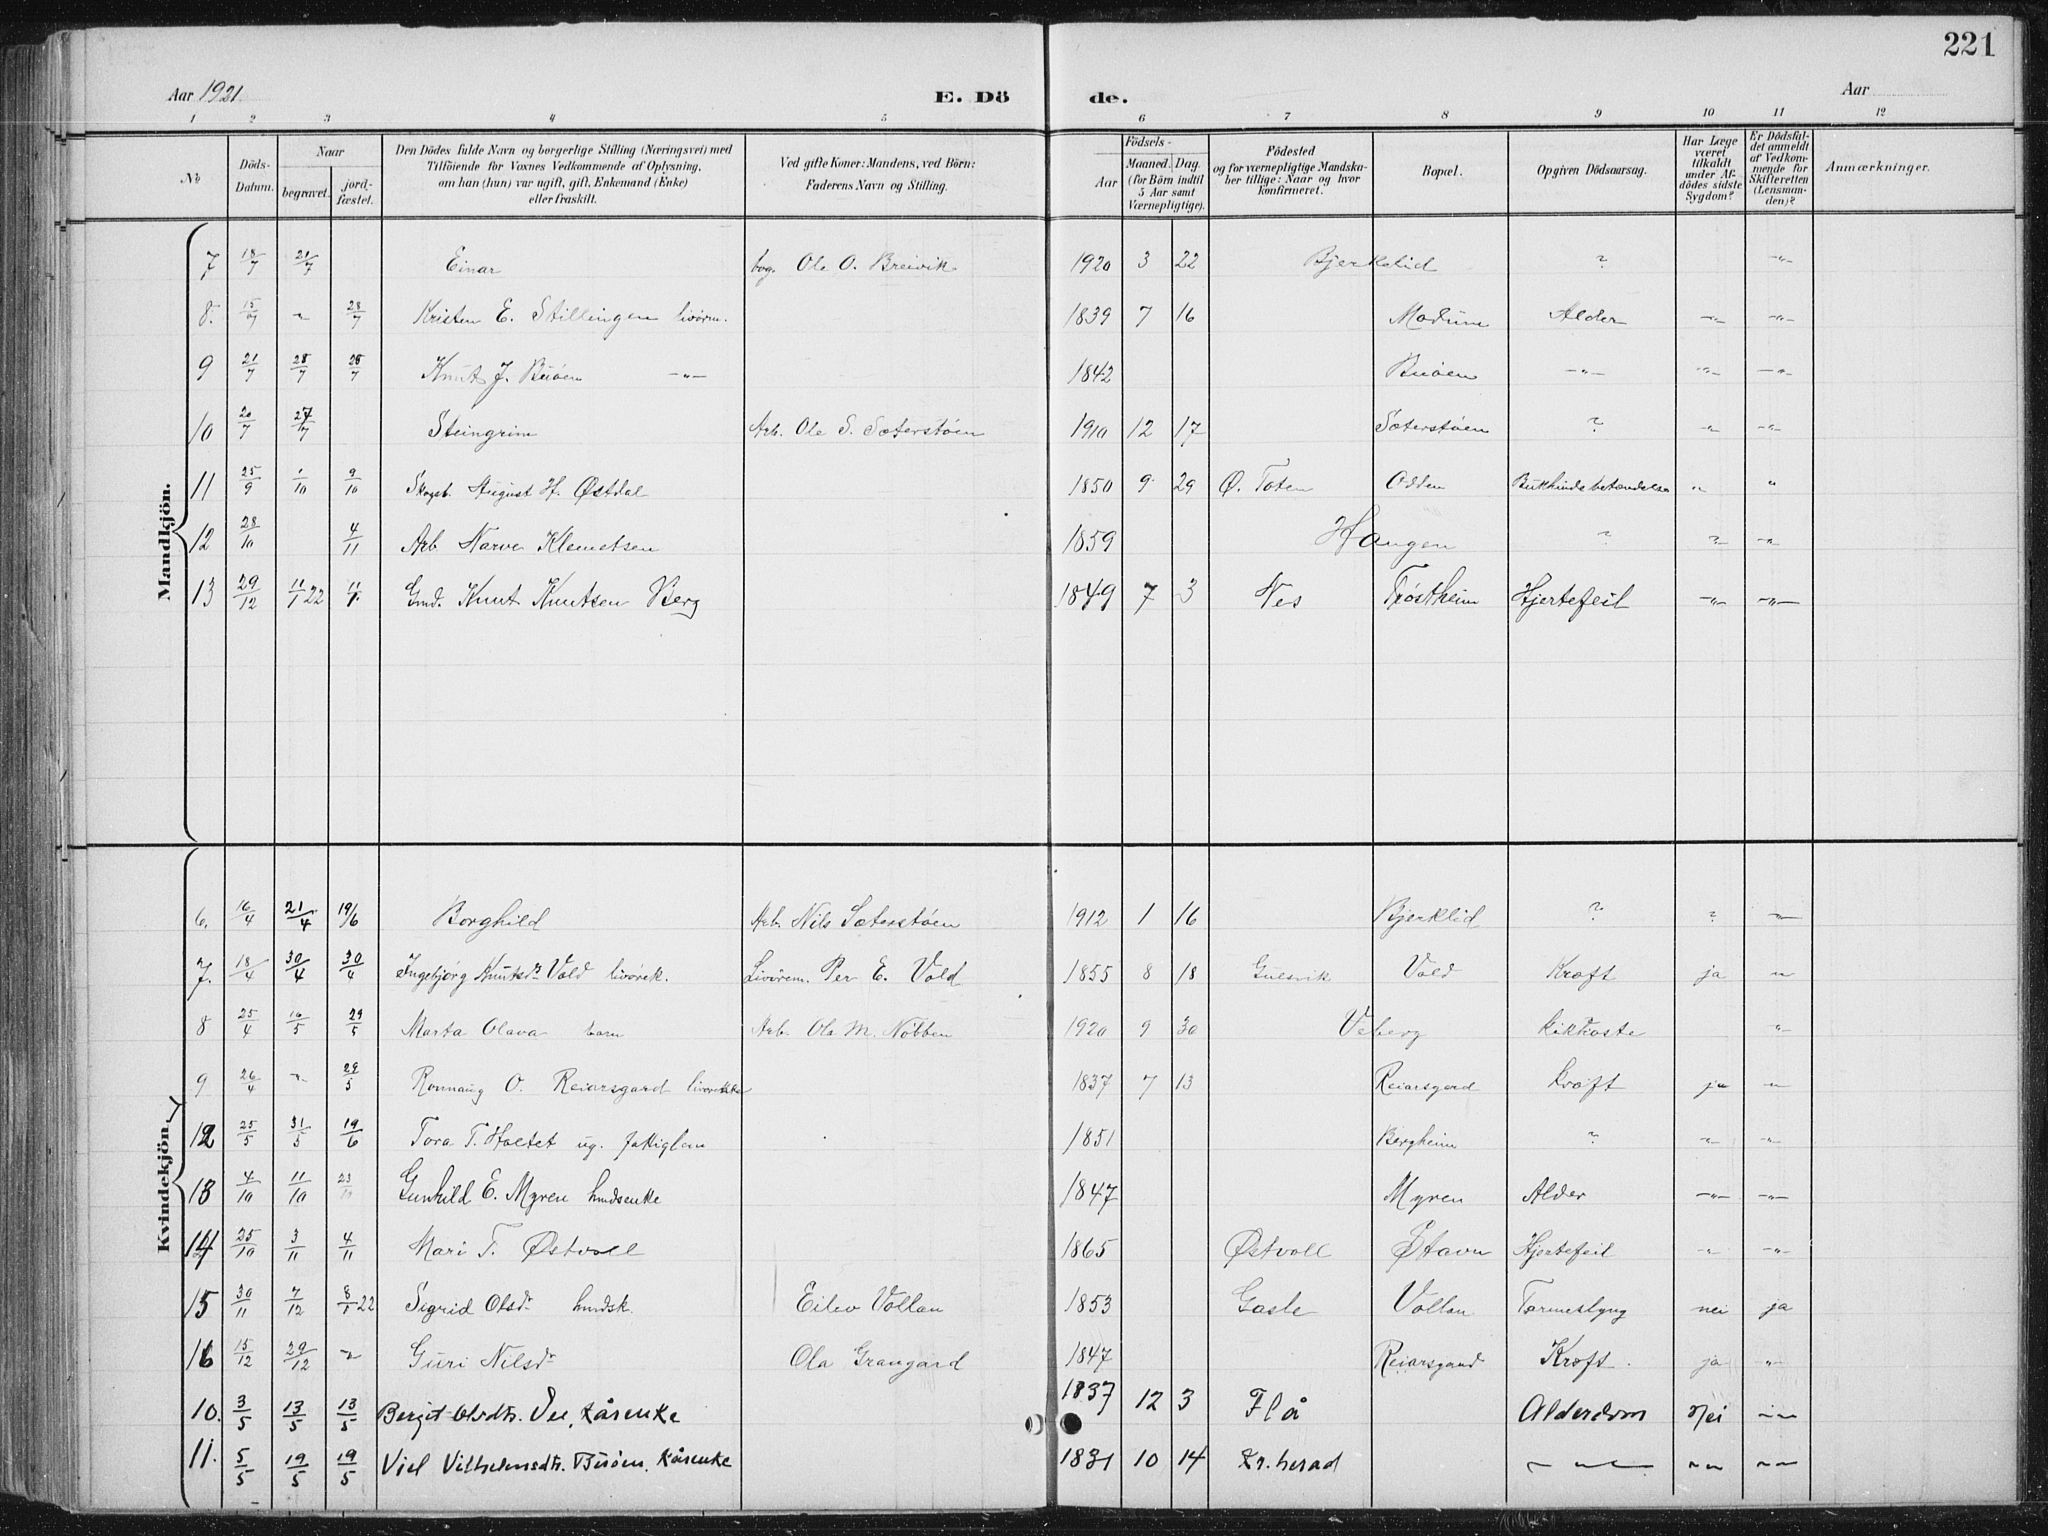 221
Aar 1921. E. Dö de. Aar
1 2 3 4 5 6 7 8 9 10 11 12
No Döds-Datum. Naar begravet. jord-fæstet. Den Dödes fulde Navn og borgerlige Stilling (Næringsvei) med Tilföiende for Voxnes Vedkommende af Oplysning, om han (hun) var ugift, gift, Enkemand (Enke) eller fraskilt. Ved gifte Koner: Mandens, ved Börn: Faderens Navn og Stilling. Födsels- Aar Maaned. Dag. (for Börn indtil 5 Aar samt Værnepligtige). Födested og for værnepligtige Mandska-ber tillige: Naar og hvor konfirmeret. Bopæl. Opgiven Dödsaarsag. Har Læge været tilkaldt under Af-dödes sidste Sygdom? Er Dödsfal-det anmeldt af Vedkom-mende for Skifteretten (Lensman-den)? Anmærkninger.
Mandkjön.
7 18/7 21/7 Einar Ole O. Breivik 1920 3 22 Bjerkelid ? -"-
8. 15/7 " 28/7 Kristen E. Stillingen livørm. 1839 7 16 Modum Alder -"- -"-
9 21/7 28/7 28/7 Knut J. Buøen -"- 1842 Buøen -"- -"- -"-
10 20/7 27/7 Steingrim Arb. Ole S. Sæterstøen 1910 12 17 Sæterstøen ? -"- -"-
11 25/9 1/10 9/10 August H. Østdal 1850 9 29 Ø. Toten Odden Bukhindebetændelse " "
12 28/10 4/11 Arb Narve Klemetsen 1859 Haugen ? ? -"-
13 29/12 11/1 22 11/1 Gmd. Knut Knutsen Berg 1849 7 3 Nes Trøstheim Hjertefeil -"- -"-
Kvindekjön.
6. 16/4 21/4 19/6 Borghild Arb. Nils Sæterstøen 1912 1 16 Bjerklid ? ? -"-
7. 18/4 30/4 30/4 Ingebjørg Knutsdr Vold livørek. Livørem. Per E. Vold 1855 8 18 Gulsvik Vold Kræft ja "
8 25/4 16/5 29/5 Marta Olava barn Arb. Ola M. Nøbben 1920 9 30 Veberg kikhoste "
9 26/4 " 29/5 Ronnaug O. Reiarsgard 1837 7 13 Reiarsgard kræft ja "
12 25/5 31/5 19/6 Tora T. Holtet ug. fattiglem 1851 Bergheim ? -"- -"-
13 4/10 11/10 23/10 Gunhild E. Myren hmdsenke 1847 Myren Alder -"- -"-
14 25/10 3/11 4/11 Mari T. Østvoll 1865 Østvoll Stavn Hjertefeil " -"-
15 30/11 7/12 8/1 22 Sigrid Olsdr hmdsk. Eilev Vollan 1853 Gasle Vollan Tarmeslyng nei ja
16 15/12 29/12 " Guri Nilsdr Ola Grangard 1847 Reiarsgard Kræft. ja -"-
10. 3/5 13/5 13/5 Bergit Olsdtr. Vee, kårenke 1837 12 3 Flå Alderdom Nei -"-
11. 5/5 19/5 19/5 Viel Vilhelmsdtr. Buøen, kårenke 1831 10 14 Kr.herad -"- -"- -"-